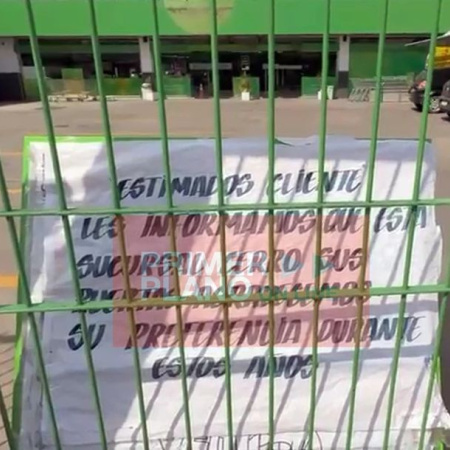 ESTIMADOS CLIENTE
LES INFORMAMOS QUE ESTA
SUCURSAL CERRO SUS
PUERTAS AGRADECEMOS
SU PREFERENCIA DURANTE
ESTOS AÑOS